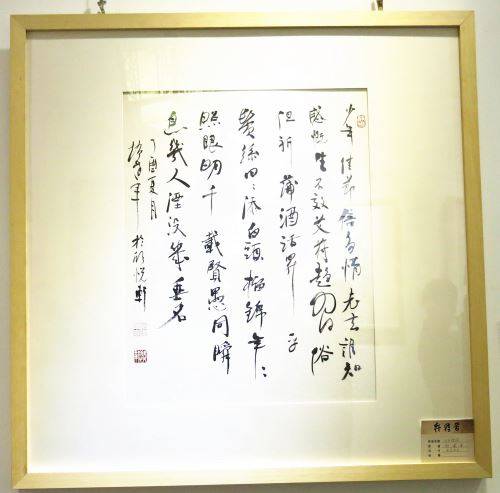 少年佳節倍多情老去誰知
感慨生不效艾符趨習俗
但祈蒲酒話昇平
鬢絲日々添白頭榴錦年々
照眼明千載賢愚同瞬
息幾人湮没幾垂名
丁酉夏月